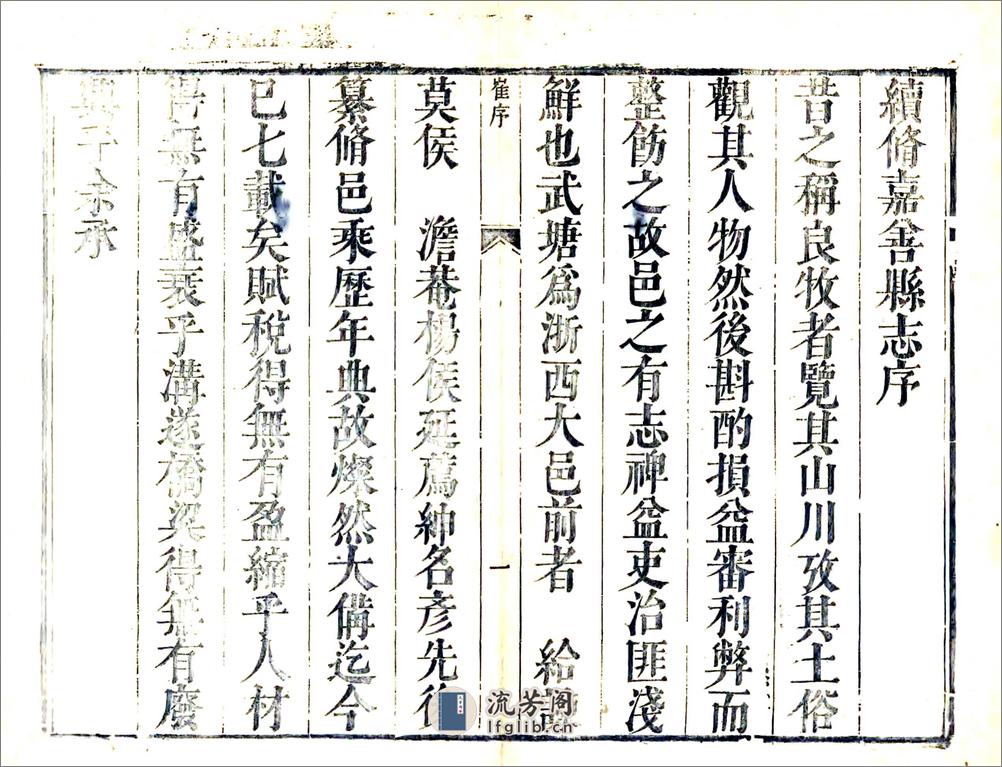 續脩嘉善縣志序
昔之稱良牧者覽其山川攷其土俗
觀其人物然後斟酌損益審利弊而
整飭之故邑之有志裨益吏治匪淺
鮮也武塘爲浙西大邑前者 給
崔序
一
莫侯 澹菴楊侯延薦紳名彥先後
纂脩邑乘歷年典故燦然大備迄今
巳七載矣賦稅得無有盈縮乎人材
得無有盛衰乎溝遂橋梁得無有廢
興乎余承
流芳阁
lfglib.cn